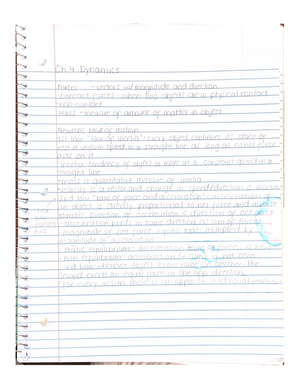 Ch. 4 Dynamics
Forces - vectors w/ magnitude and direction
contact forces - when two objects are in physical contact
non-contact
Mass - measure of amount of matter in object
Newton's law of motion
1st law "law of inertia": every object continues its state of
rest or uniform speed in a straight line as long as no net force
acts on it
inertia - tendency of object to move at a constant speed in a
straight line
mass is quantitative measure of inertia
velocity is a vector and change in speed/direction is
2nd law "law of force and acceleration" - acceleration of
an object is directly proportional to net force and
direction of acceleration is direction of net force
acceleration
magnitude of net force equals mass multiplied by
magnitude of acceleration
static equilibrium - acceleration
non equilibrium - acceleration
3rd law whenever object exerts force on another, the
second exerts an equal force in the opp direction
for every action, there is an opposite and equal reaction